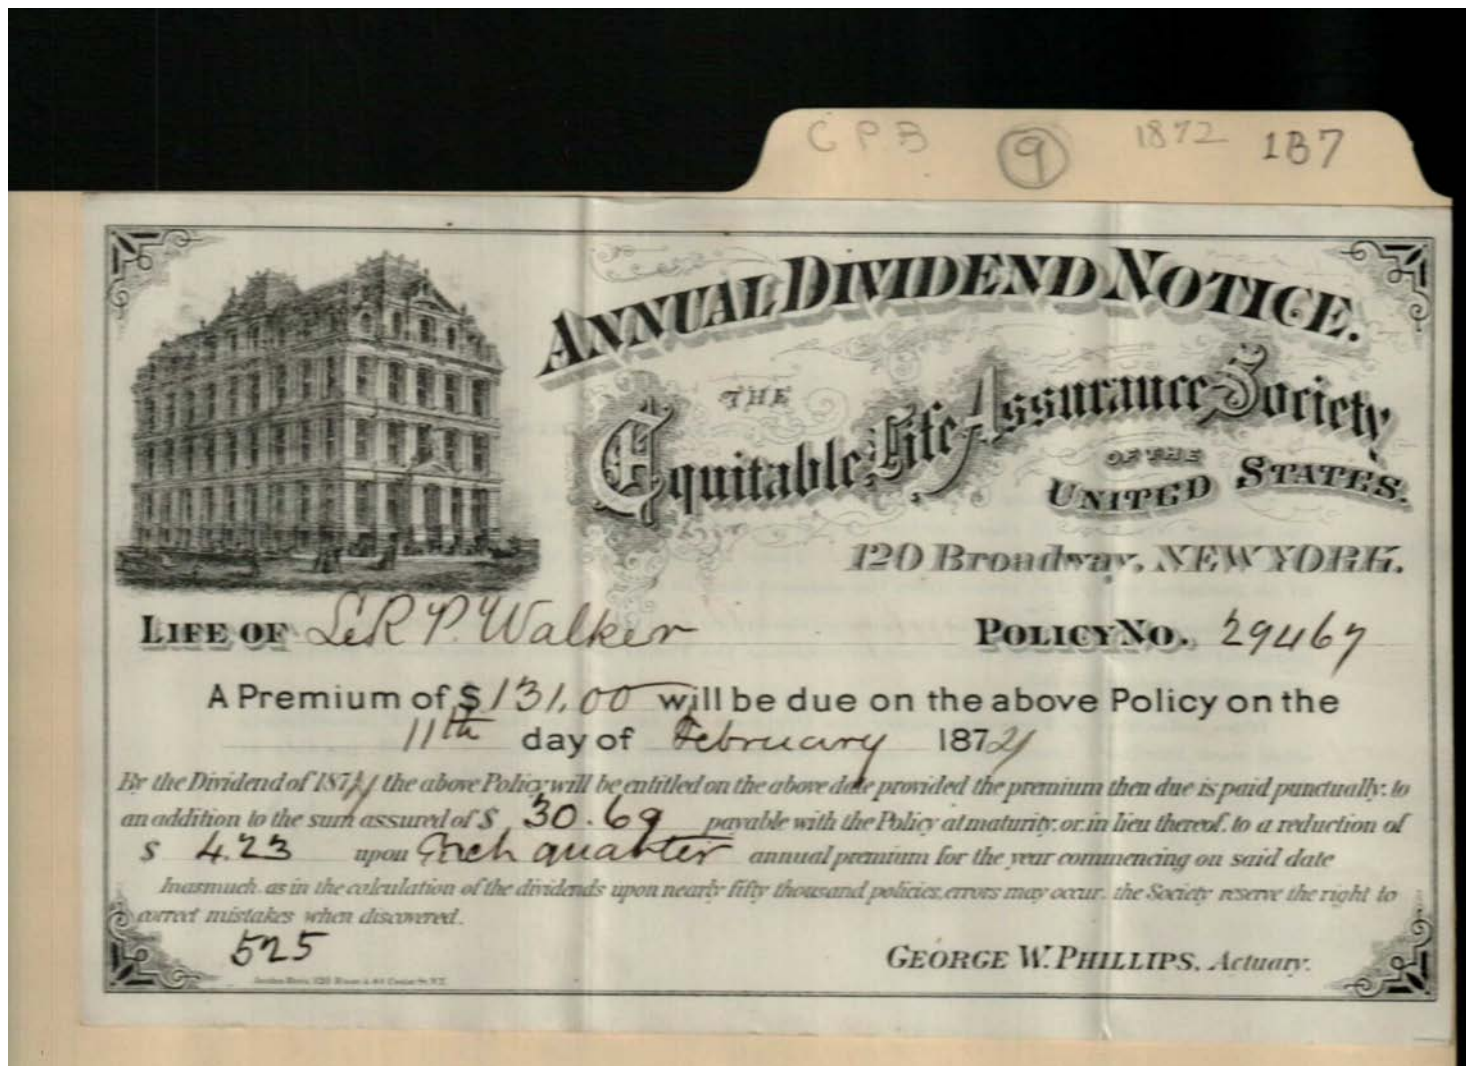 C P B 9 1872 187
ANNUAL DIVIDEND NOTICE.
THE
Equitable Life Assurance Society
OF THE
UNITED STATES.
120 Broadway, NEW YORK.
LIFE OF LeR P. Walker POLICY NO. 29467
A Premium of $ 131.00 will be due on the above Policy on the
11th day of February 1872
By the Dividend of 187 the above Policy will be entitled on the above date provided the premium then due is paid punctually, to
an addition to the sum assured of $ 30.69 payable with the Policy at maturity, or, in lieu thereof, to a reduction of
$ 4.23 upon Each quarter annual premium for the year commencing on said date
Inasmuch, as in the calculation of the dividends upon nearly fifty thousand policies, errors may occur, the Society reserve the right to
correct mistakes when discovered.
525
GEORGE W. PHILLIPS, Actuary.